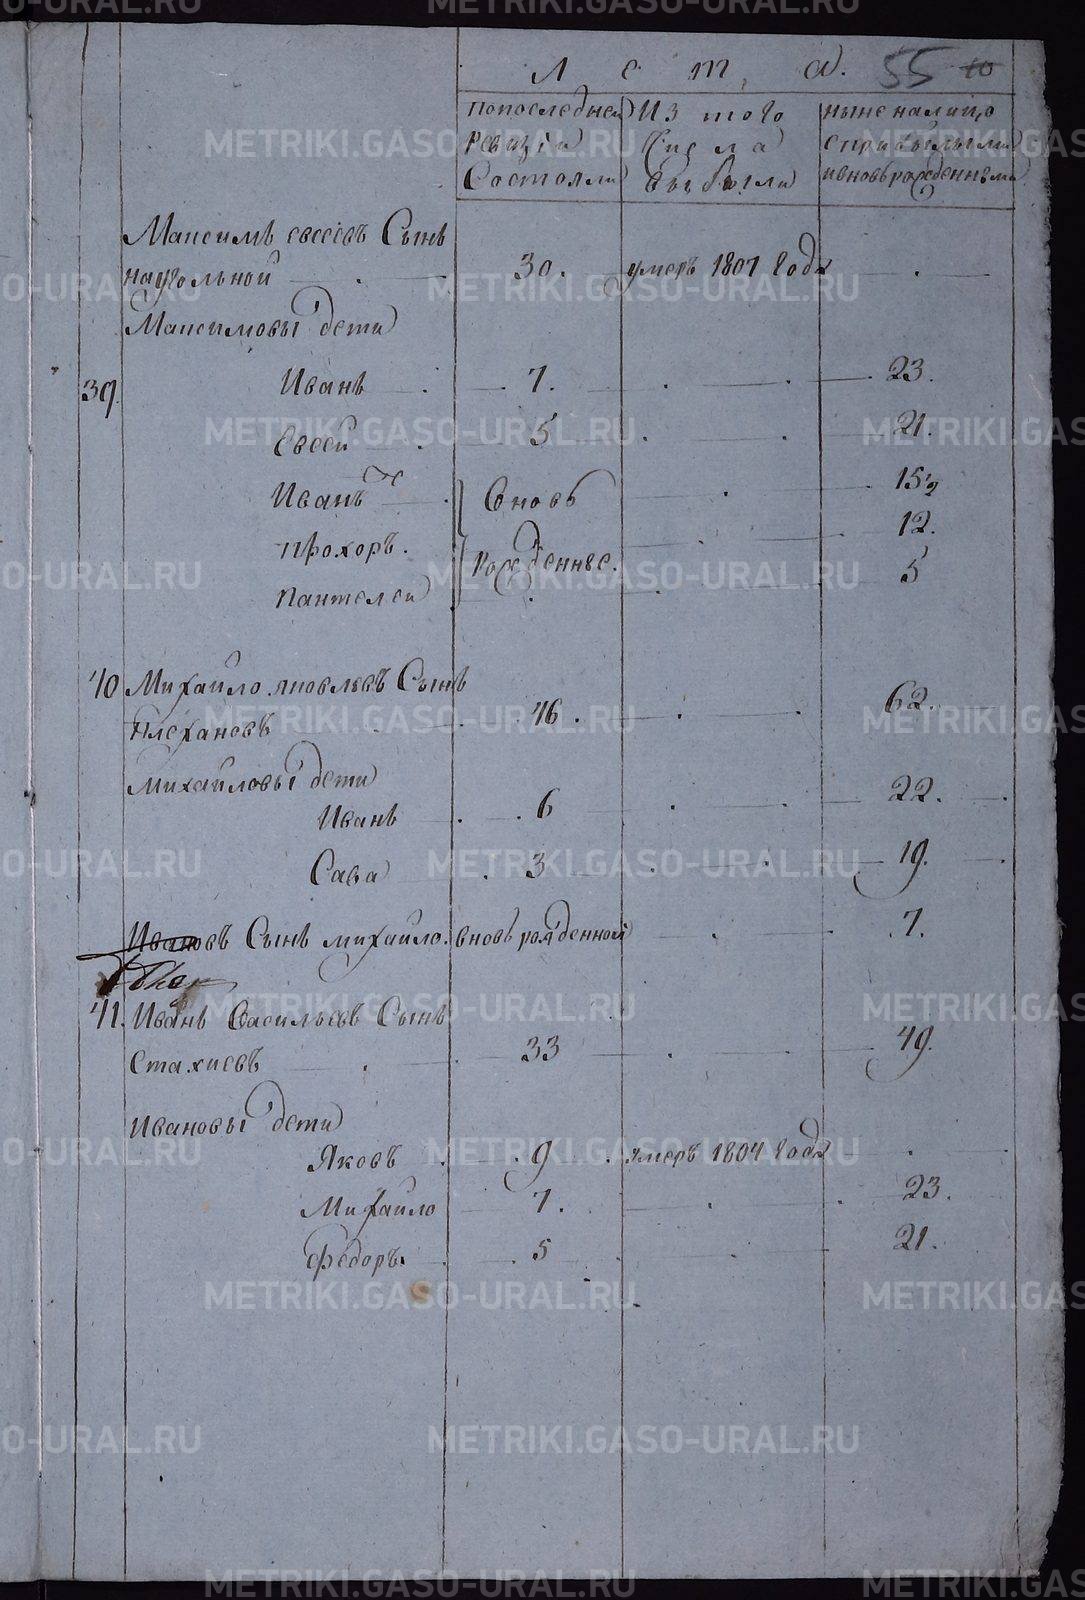 Л е т а. 55 10
По последней Из того Ныне на лицо
Ревизiи Числа с прибылыми
Состояли выбыли и вновь рожденными
Максимъ евсеевъ Сынъ
наугольной 30. умеръ 1807 года
Максимовы дети
39. Иванъ 7. 23.
Евсей 5 21.
Иванъ вновь 15½
Прохоръ. рожденные. 12.
Пантелей 5
40 Михайло яковлевъ Сынъ
Плехановъ 46. 62.
Михайловы дети
Иванъ 6 22.
Сава 3 19.
Ивановъ Сынъ михайло. вновь рожденной 7.
41. Иванъ Васильевъ Сынъ
Стахиевъ 33 49.
Ивановы дети
Яковъ 9 умеръ 1807 года
Михайло 7. 23.
Федоръ. 5 21.
METRIKI.GASO-URAL.RU